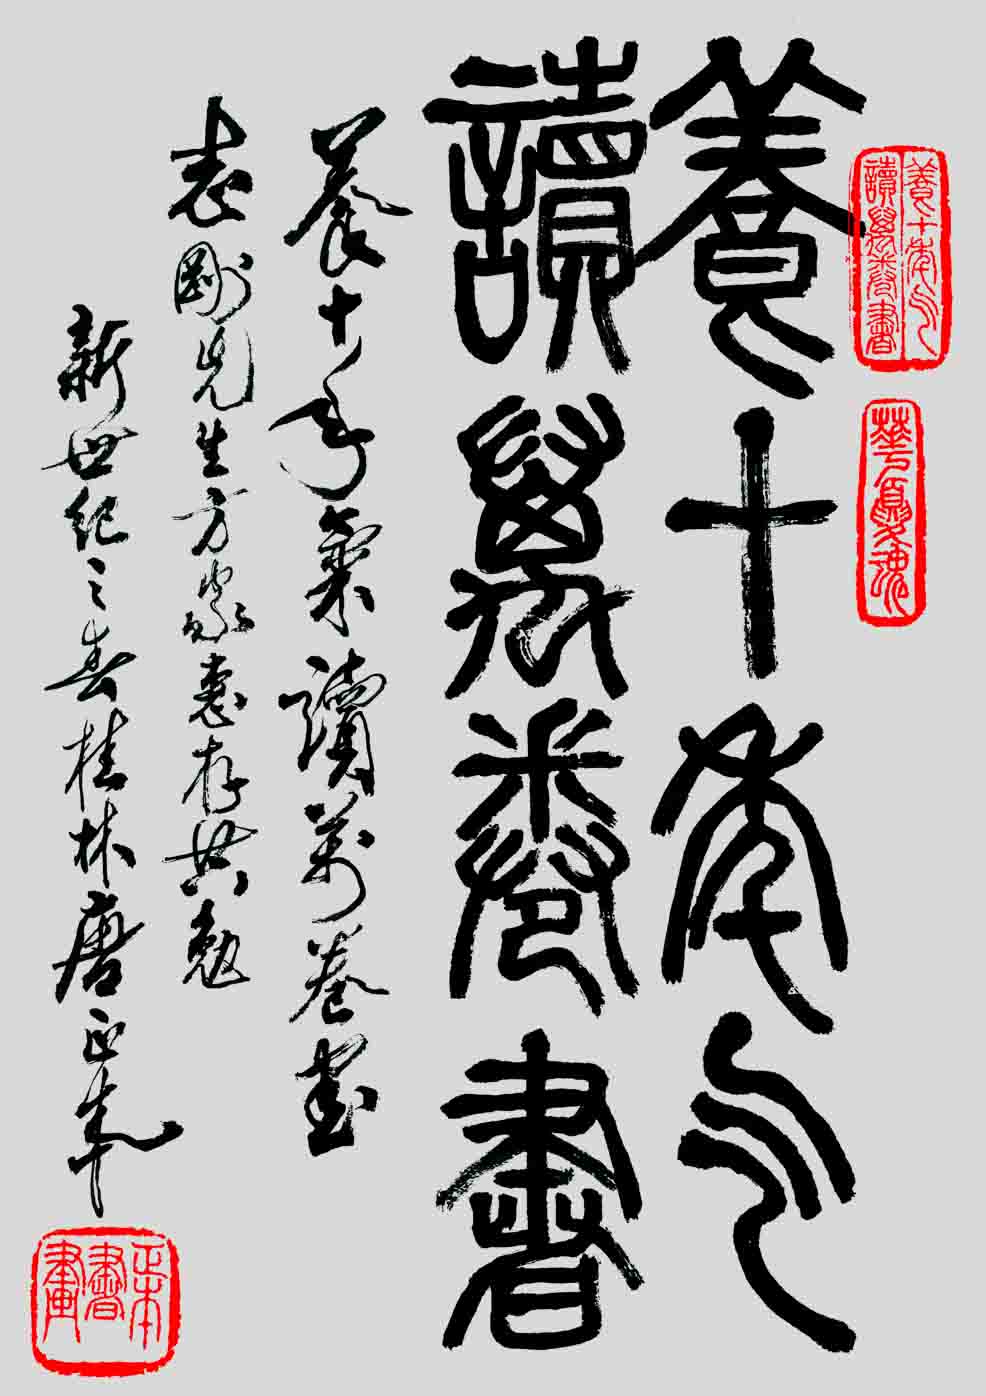 養十年气
讀萬卷書
養十年氣讀萬卷書
志剛先生方家惠存共勉
新世纪之春桂林唐正
養十年气
讀萬卷書
華夏文魂
書畫